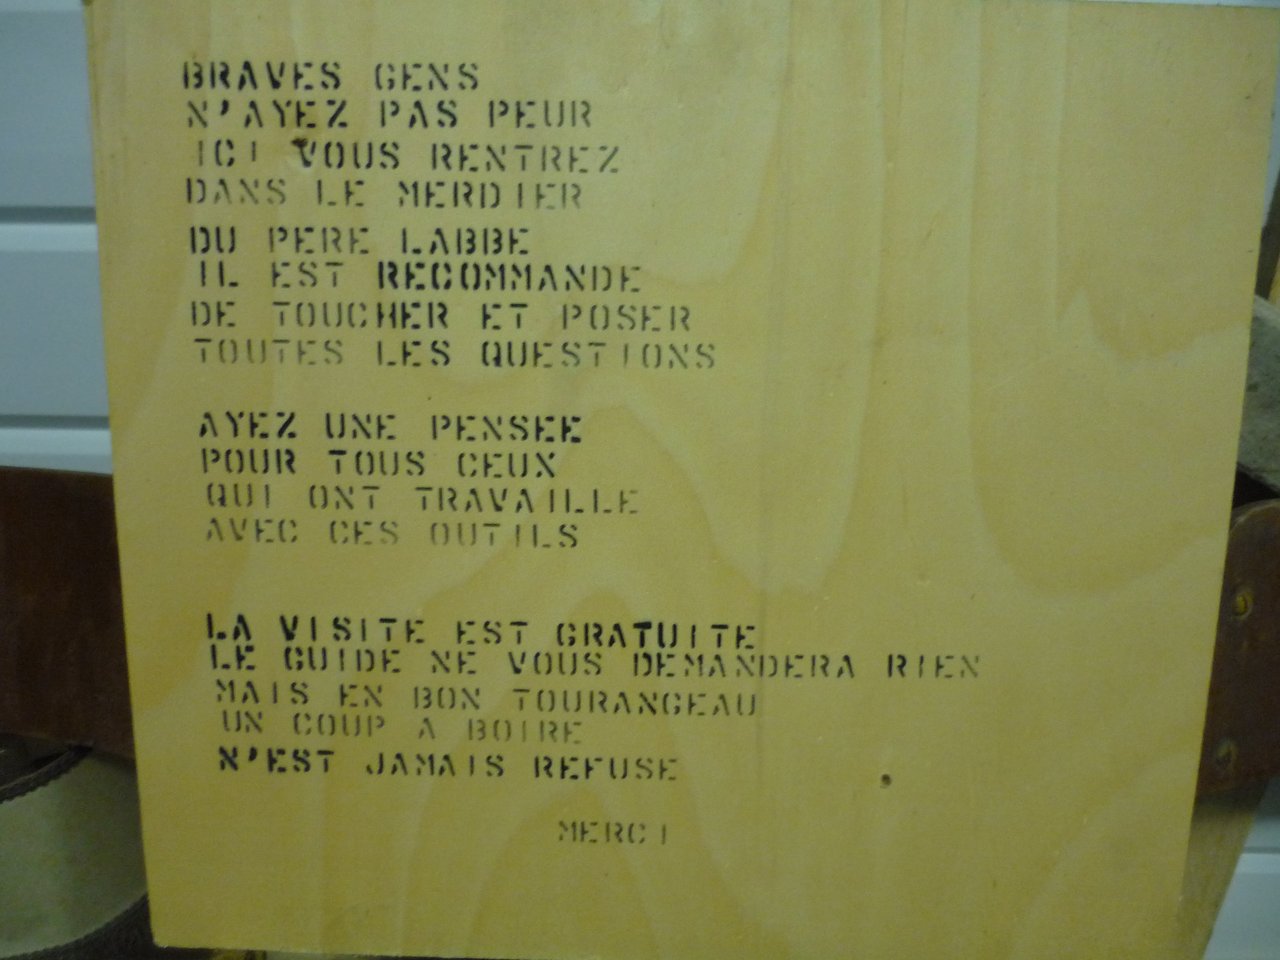 BRAVES GENS
N'AYEZ PAS PEUR
ICI VOUS RENTREZ
DANS LE MERDIER
DU PERE LABBE
IL EST RECOMMANDE
DE TOUCHER ET POSER
TOUTES LES QUESTIONS
AYEZ UNE PENSEE
POUR TOUS CEUX
QUI ONT TRAVAILLE
AVEC CES OUTILS
LA VISITE EST GRATUITE
LE GUIDE NE VOUS DEMANDERA RIEN
MAIS EN BON TOURANGEAU
UN COUP A BOIRE
N'EST JAMAIS REFUSE
MERCI